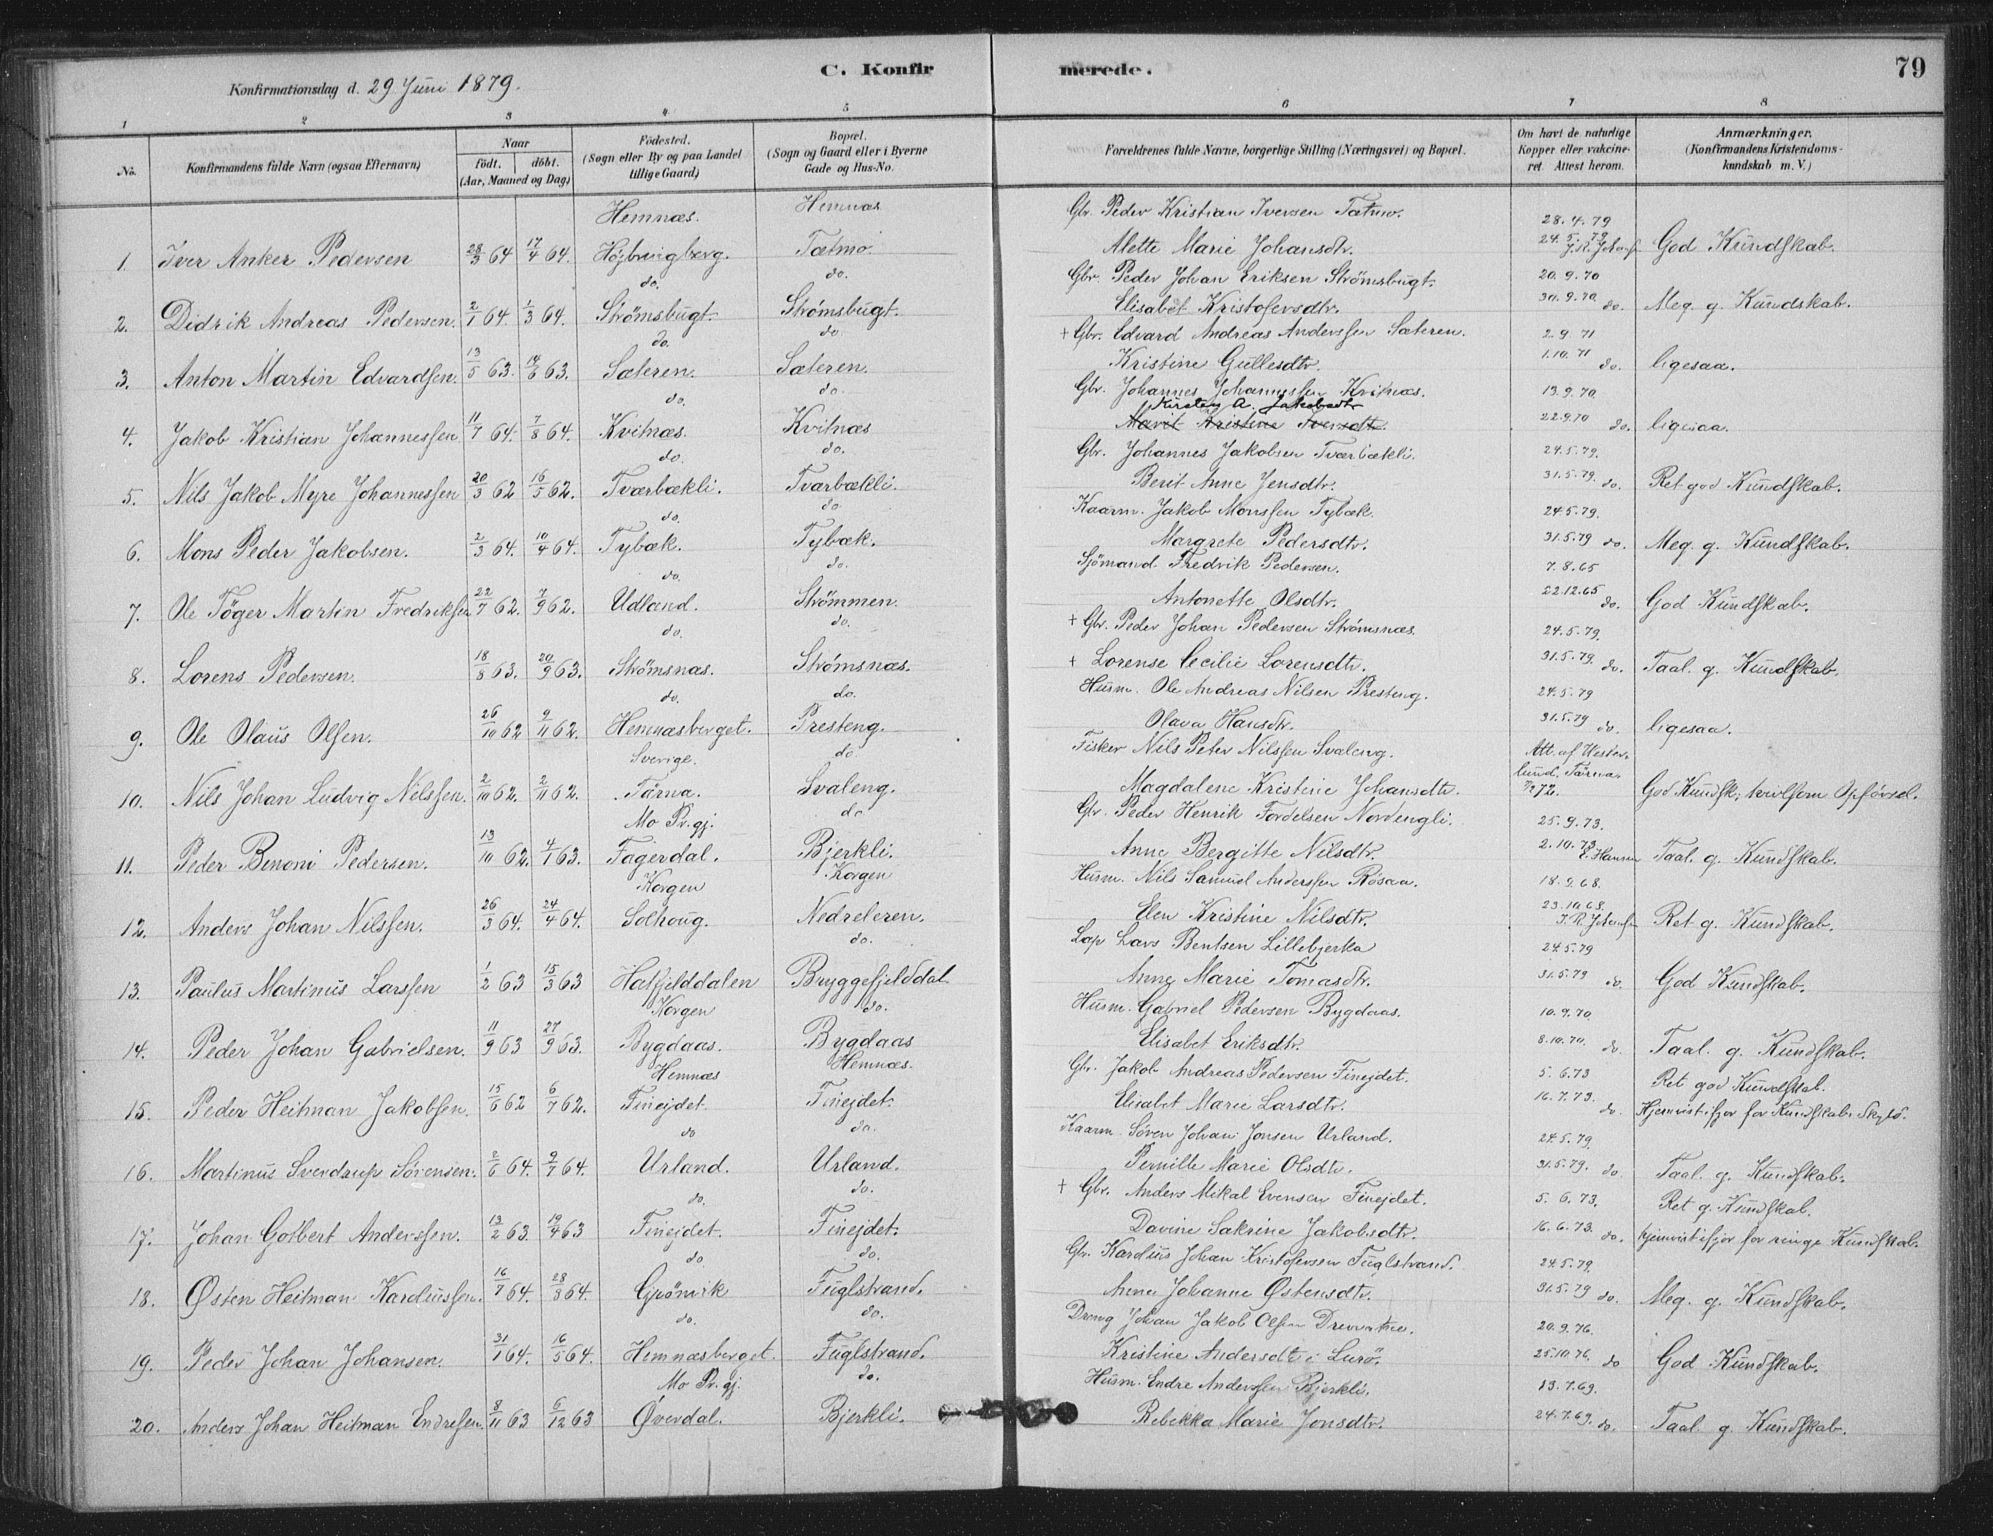 C. Konfirmerede.
79
Konfirmationsdag d. 29 Juni 1879.
1 2 3 4 5 6 7 8
No. Konfirmandens fulde Navn (ogsaa Efternavn) Naar födt. döbt. (Aar, Maaned og Dag) Födested. (Sogn eller By og paa Landet tillige Gaard) Bopæl. (Sogn og Gaard eller i Byerne Gade og Hus-No. Forældrenes fulde Navne, borgerlige Stilling (Næringsvei) og Bopæl. Om havt de naturlige Kopper eller vakcineret. Attest herom. Anmærkninger. (Konfirmandens Kristendomskundskab m. V.)
Hemnæs. Hemnæs Gbr. Peder Kristian Iversen Tætmo. 28.4.79
1. Iver Anker Pedersen 28/3 64 17/4 64. Höjbringberg. Tætmo. Alette Marie Johansdtr. 24.5.79 God Kundskab.
do. do. Gbr. Peder Johan Eriksen Strömsbugt. 20.9.70
2. Didrik Andreas Pedersen. 2/1 64. 1/3 64. Strömsbugt. Strömsbugt. Elisabet Kristofersdtr. 30.9.70. do. Meg. g. Kundskab.
do. do + Gbr. Edvard Andreas Anderssen Sæteren. 2.9.71
3. Anton Martin Edvardsen. 13/5 63. 14/6 63. Sæteren. Sæteren. Kristine Gullesdtr. 1.10.71 do. ligesaa.
do. do. Gbr. Johannes Johannessen Kvitnæs. 19.9.70.
Kirsten A. Jakobsdtr
4. Jakob Kristian Johannessen 11/7 64. 7/8 64. Kvitnæs. Kvitnæs Marit Kristine Iversdtr. 22.9.70 do. ligesaa.
do. do. Gbr. Johannes Jakobsen Tværbækli. 24.5.79.
5. Nils Jakob Myre Johannessen 20/3 62 16/5 62. Tværbækli. Tværbækli. Berit Anne Jensdtr. 31.5.79. do. Ret god Kundskab.
do. do Kaarm. Jakob Monssen Tybæk. 24.5.79.
6. Mons Peder Jakobsen. 2/3 64. 10/4 64. Tybæk. Tybæk. Margrete Pedersdtr. 31.5.79 do. Meg. g. Kundskab.
do. do. Sjömand Fredrik Pedersen. 7.8.65
7. Ole Töger Martin Fredriksen 22/7 62. 7/9 62. Udland. Strömmen. Antonette Olsdtr. 22.12.65 do. God Kundskab.
do. do. + Gbr. Peder Johan Pedersen Strömsnæs. 24.5.79.
8. Lorens Pedersen. 18/8 63. 20/9 63. Strömsnæs. Strömsnæs. + Lorense Cecilie Lorensdtr. 31.5.79. do. Taal. g. Kundskab.
do. do. Husm. Ole Andreas Nilsen Presteng. 24.5.79
9. Ole Olaus Olsen. 26/10 62 9/11 62. Hemnæsberget. Presteng. Olava Hansdtr. 31.5.79 do. ligesaa.
Sverige. do. Fisker Nils Peter Nilssen Svaleng. Att. af Wester-
10. Nils Johan Ludvig Nilssen. 2/10 62. 2/11 62. Tärna. Svaleng. Magdalene Kristine Johansdtr. lund, Tärna. 72. God Kundsk; tvivlsom Opførsel.
Mo Pr.gj. do Gbr. Peder Henrik Fordelsen Nordengli. 25.9.73.
11. Peder Benoni Pedersen. 13/10 62. 4/1 63. Fagerdal. Bjerkli. Anne Bergitte Nilsdtr. 2.10.73 E. Hansen Taal. g. Kundskab.
Korgen Korgen Husm. Nils Samuel Anderssen Rösaa. 18.9.68.
12. Anders Johan Nilssen. 26/3 64. 24/4 64. Solhoug. Nedreleren. Elen Kristine Nilsdtr. 23.10.68. Ret g. Kundskab.
do. Lap Lars Bentsen Lillebjerka 24.5.79
13. Paulus Martinus Larssen 1/2 63 15/3 63 Hatfjelddalen Bryggefjelddal Anne Marie Tomasdtr. 31.5.79 do. God Kundskab.
Korgen do. Husm. Gabriel Pedersen Bygdaas. 10.9.70.
14. Peder Johan Gabrielsen. 11/9 63 27/9 63. Bygdaas. Bygdaas Elisabet Eriksdtr. 8.10.70. do. Taal. g. Kundskab.
Hemnæs Hemnæs. Gbr. Jakob Andreas Pedersen Finejdet. 5.6.73 Ret god Kundskab.
15. Peder Heitman Jakobsen. 15/6 62 6/7 62. Finejdet. Finejdet. Elisabet Marie Larsdtr. 16.7.73. do. Hjemvist ifjor for Kundskabs Skyld.
do do. Kaarm. Sören Johan Jonsen Urland. 24.5.79.
16. Martinus Sverdrup Sörensen. 2/6 64. 9/7 64. Urland. Urland. Pernille Marie Olsdtr. 31.5.79. do Taal. g. Kundskab.
do. do. + Gbr. Anders Mikal Evensen Finejdet. 5.6.73. Ret g. Kundskab.
17. Johan Gotbert Anderssen. 13/2 63. 19/4 63 Finejdet. Finejdet. Davine Sakrine Jakobsdtr. 16.6.73. do. hjemvist ifjor for ringe Kundskab.
do do. Gbr. Kardius Johan Kristofersen Fuglstrand. 24.5.79.
18. Østen Heitman Kardiussen. 16/7 64. 28/8 64. Grönvik Fuglstrand. Anne Johanne Østensdtr. 31.5.79 do. Meg. g. Kundskab.
do. do. Dreng Johan Jakob Olsen 20.9.76.
19. Peder Johan Johansen. 31/1 64. 16/5 64. Hemnæsberget. Fuglstrand. Kristine Andersdtr i Lurö. 25.10.76. do God Kundskab.
Mo Pr. gj. do. Husm. Endre Anderssen Bjerkli. 13.7.69.
20. Anders Johan Heitman Endresen. 8/11 63 6/12 63 Øverdal. Bjerkli. Rebekka Marie Jonsdtr. 24.7.69. do. Taal. g. Kundskab.